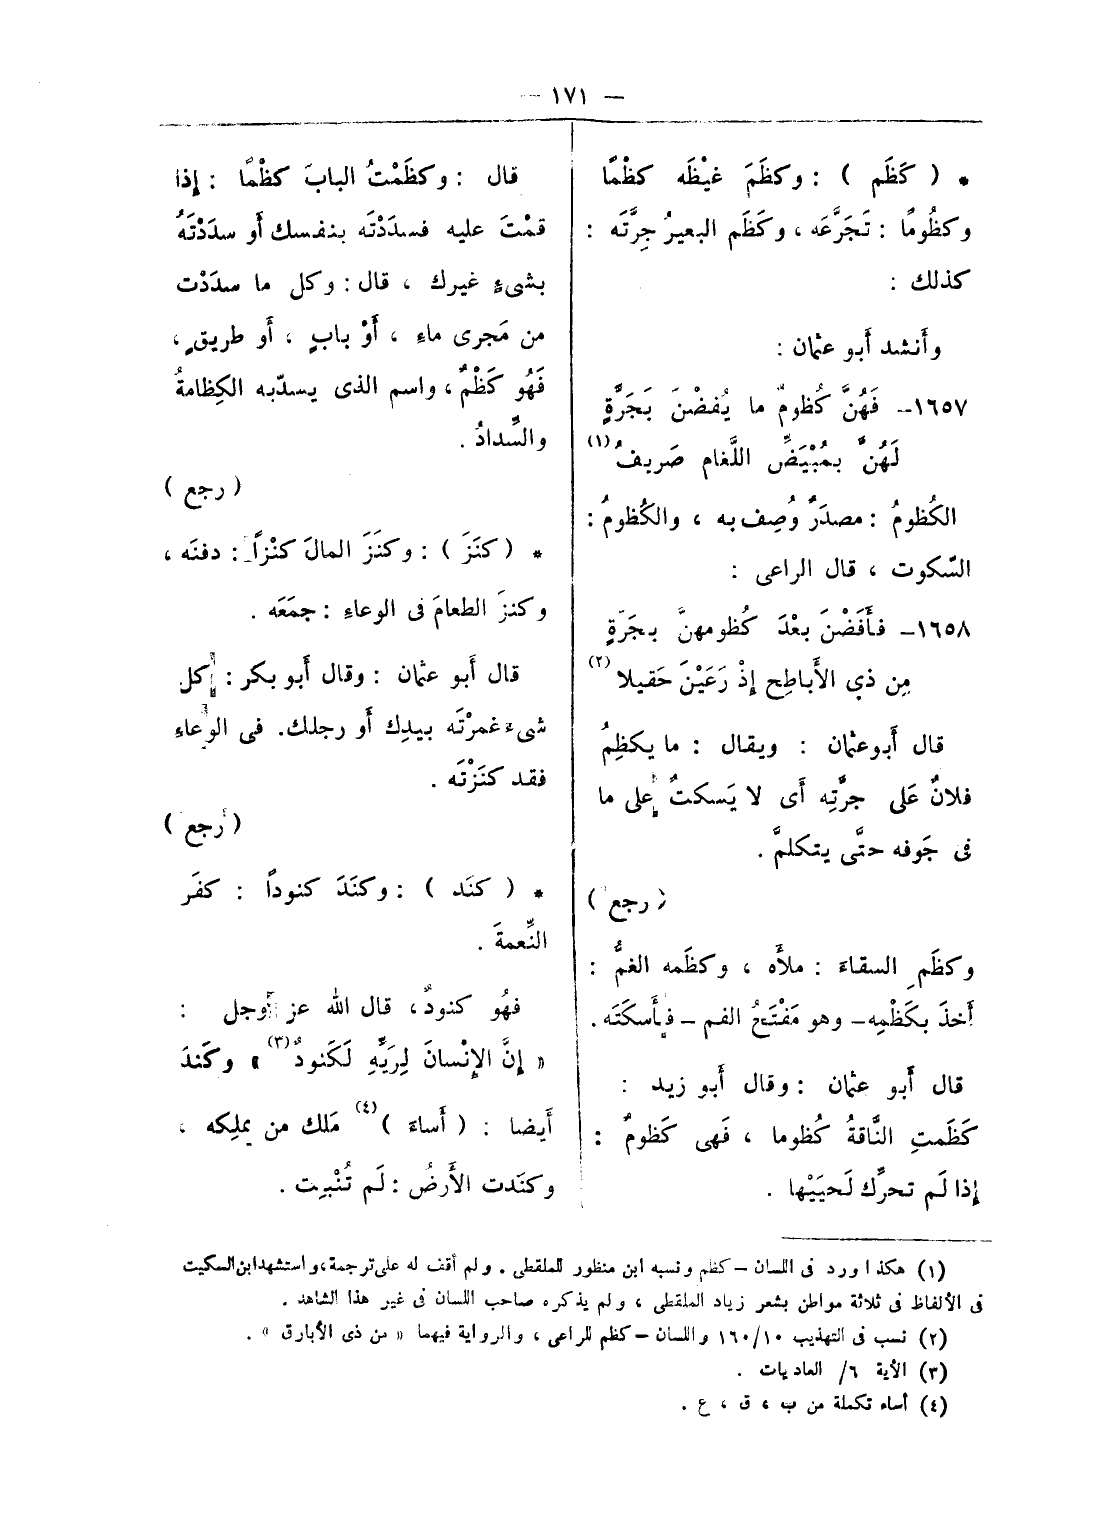 — ١٧١ —
* ( كَظَم ) : وكظَمَ غيْظَه كظْمًا
وكظُومًا : تَجَرَّعَه ، وكَظَم البعيرُ جِرَّتَه :
كذلك :
وأَنشد أَبو عثمان :
١٦٥٧ــ فَهُنَّ كُظومٌ ما يُفضْنَ بَجَرَّةٍ
لَهُنَّ بمُبْيَضِّ اللَّغام صَريفُ (١)
الكُظومُ : مصدَرٌ وُصِف به ، والكُظومُ :
السّكوت ، قال الراعى :
١٦٥٨ــ فأَفَضْنَ بعْدَ كُظومهنَّ بجَرّةٍ
مِن ذي الأَباطِح إذْ رَعَيْنَ حَقيلا (٢)
قال أَبوعثمان : ويقال : ما يكظِمُ
فلانٌ عَلى جرَّتِه أَى لا يَسكتُ على ما
فى جَوفه حتَّى يتكلمَّ .
( رجع )
وكظَم السقاءَ : ملأَه ، وكظَمه الغمُّ :
أَخذَ بكَظْمِه ــ وهو مَفْتَحُ الفم ــ فأَسكَتَه .
قال أَبو عثمان : وقال أَبو زيد :
كَظَمتِ النَّاقةُ كُظوما ، فَهى كَظومٌ :
إذا لَم تحرَّك لَحيَيْها .
قال : وكظَمْتُ البابَ كظْمًا : إذا
قمْتَ عليه فسدَدْتَه بنفسك أَو سدَدْتَهُ
بشىءٍ غيرك ، قال : وكل ما سدَدْت
من مَجرى ماءٍ ، أَوْ بابٍ ، أَو طريقٍ ،
فَهُو كَظْمٌ ، واسم الذى يسدّبه الكِظامةُ
والسِّدادُ .
( رجع )
* ( كنَزَ ) : وكنَزَ المالَ كنْزاً : دفنَه ،
وكنزَ الطعامَ فى الوعاءِ : جمَعَه .
قال أَبو عثمان : وقال أَبو بكر : كل
شىء غمرْتَه بيدِك أَو رجلك. فى الوعاءِ
فقد كنَزْتَه .
( رجع )
* ( كنَد ) : وكنَدَ كنوداً : كفَر
النِّعمةَ .
فهُو كنودٌ ، قال الله عز وجل :
« إنَّ الإنْسانَ لِرَبِّهِ لَكَنودٌ (٣) » وكَندَ
أَيضا : ( أَساءَ ) (٤) مَلك من يملِكه ،
وكنَدت الأَرضُ : لَم تُنْبِت .
(١) هكذا ورد فى اللسان – كظم ونسبه ابن منظور للملقطى . ولم أقف له على ترجمة ، واستشهد ابن السكيت
فى الألفاظ فى ثلاثة مواطن بشعر زياد الملقطى ، ولم يذكره صاحب اللسان فى غير هذا الشاهد .
(٢) نسب فى التهذيب ١٦٠/١٠ واللسان – كظم للراعى ، والرواية فيهما « من ذى الأبارق » .
(٣) الأية ٦/ العاديات .
(٤) أساء تكملة من ب ، ق ، ع .